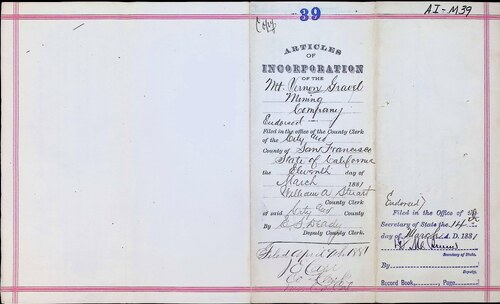 39
AI-M39
Copy
ARTICLES
OF
INCORPORATION
OF THE
Mt. Vernon Gravel
Mining
Company
Endorsed
Filed in the office of the County Clerk
of the City and
County of San Francisco
State of California
the Eleventh day of
March 1881
William A Stuart
County Clerk
of said City and County
By
Deputy County Clerk.
Filed April
Endorsed)
Filed in the Office of the
Secretary of State the 14
day of March A. D. 1881
Secretary of State.
By
Deputy.
Record Book, Page